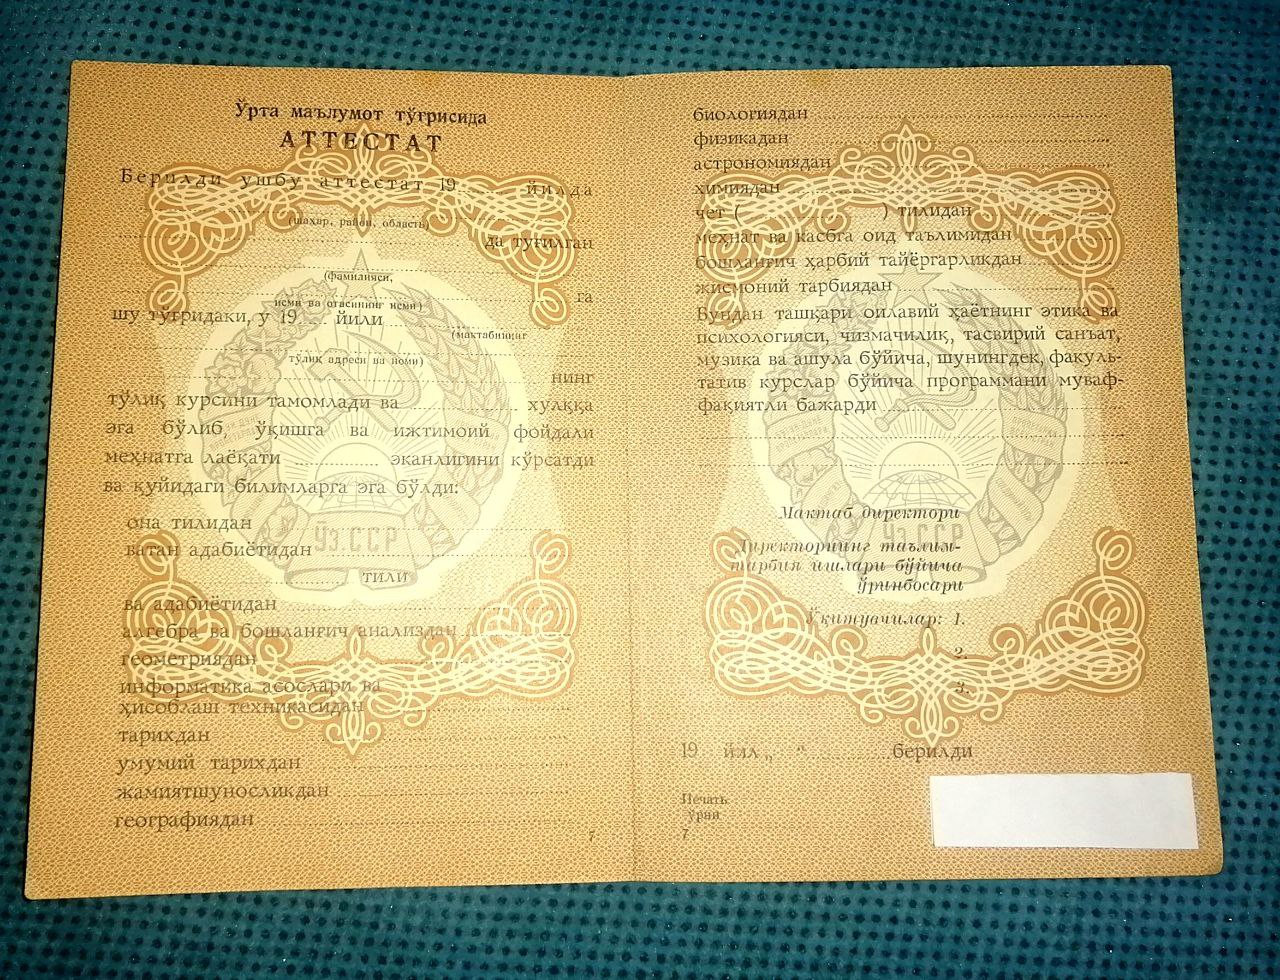 Ўрта маълумот тўғрисида
АТТЕСТАТ
Берилди ушбу аттестат 19...... йилда
(шаҳар, район, область)
да туғилган
(фамилияси,
га
исми ва отасининг исми)
шу тўғридаки, у 19..... йили
(мактабнинг
тўлиқ адреси ва номи)
нинг
тўлиқ курсини тамомлади ва .............. хулққа
эга бўлиб, ўқишга ва ижтимоий фойдали
меҳнатга лаёқати .............. эканлигини кўрсатди
ва қуйидаги билимларга эга бўлди:
она тилидан
ватан адабиётидан
.............. тили
ва адабиётидан
алгебра ва бошланғич анализдан
геометриядан
информатика асослари ва
ҳисоблаш техникасидан
тарихдан
умумий тарихдан
жамиятшуносликдан
географиядан
7
ЎзССР
биологиядан
физикадан
астрономиядан
химиядан
чет (..............) тилидан
меҳнат ва касбга оид таълимидан
бошланғич ҳарбий тайёргарликдан
жисмоний тарбиядан
Бундан ташқари оилавий ҳаётнинг этика ва
психологияси, чизмачилик, тасвирий санъат,
музика ва ашула бўйича, шунингдек, факуль-
татив курслар бўйича программани муваф-
фақиятли бажарди
Мактаб директори
ЎзССР
Директорнинг таълим-
тарбия ишлари бўйича
ўринбосари
Ўқитувчилар: 1.
2.
3.
19   йил „   “ .............. берилди
Печать
ўрни
7